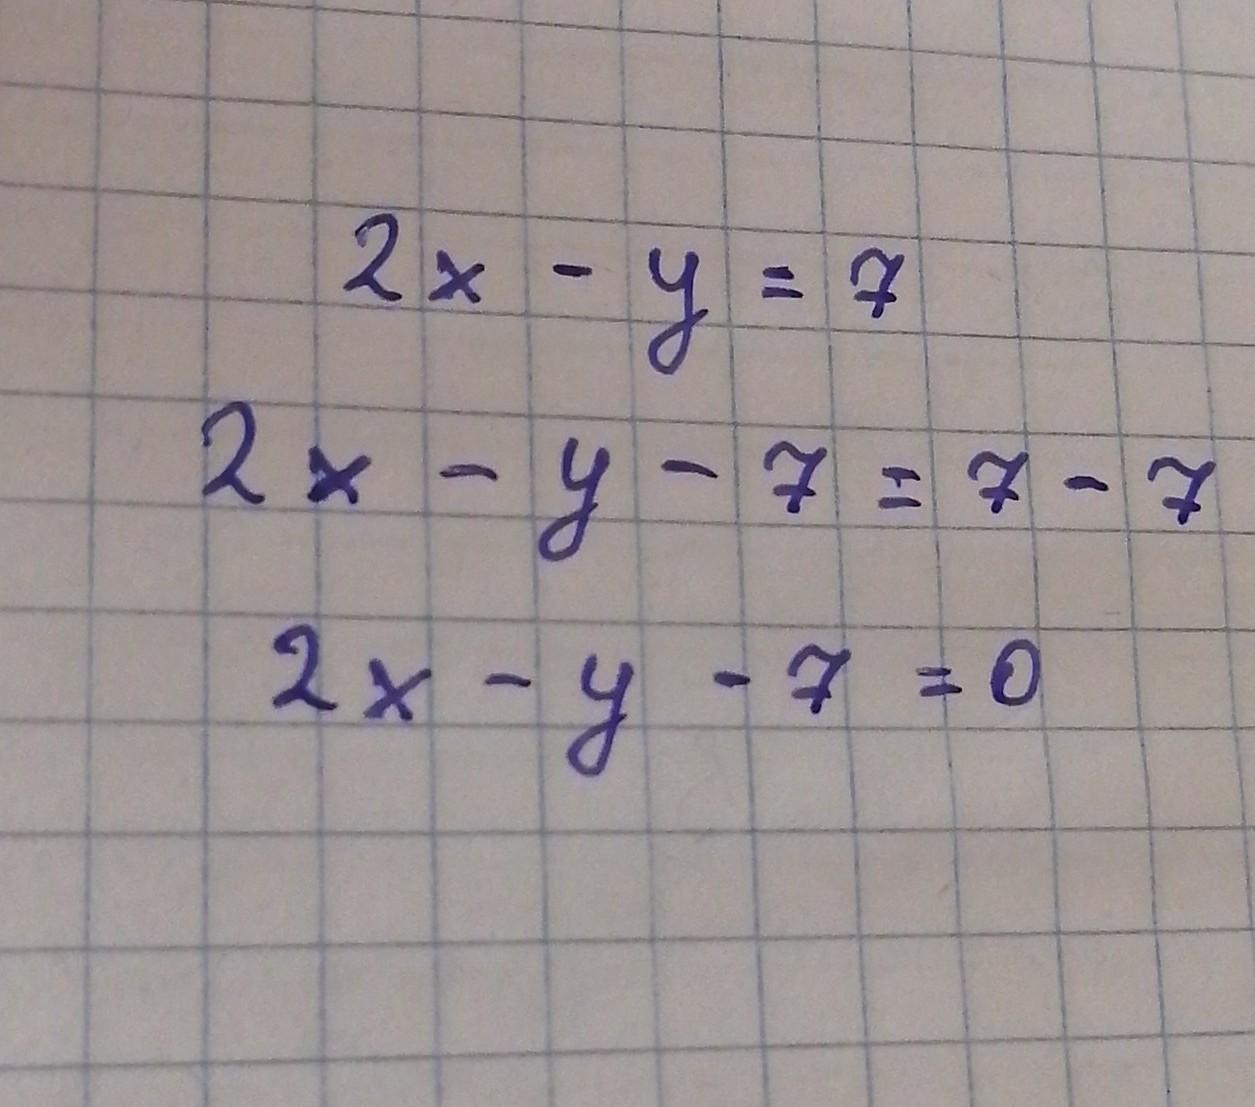 2x - y = 7
2x - y - 7 = 7 - 7
2x - y - 7 = 0